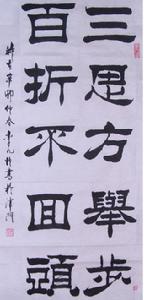 三思方舉步
百折不回頭
辛卯仲春
書於津門